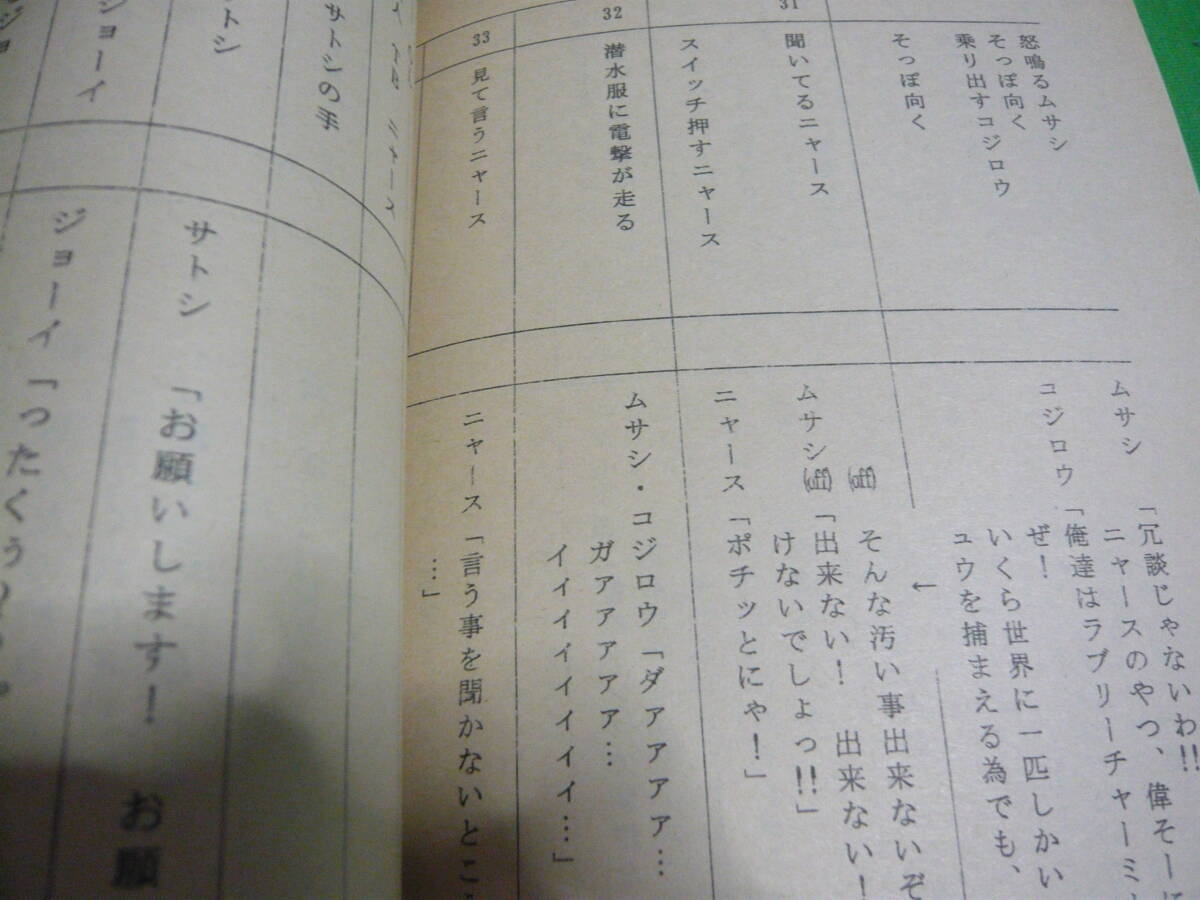 怒鳴るムサシ
そっぽ向く
乗り出すコジロウ
そっぽ向く
ムサシ 「冗談じゃないわ!!
ニャースのやつ、偉そーに
コジロウ 「俺達はラブリーチャーミ
ぜ!
いくら世界に一匹しかい
ュウを捕まえる為でも、
↓
31
聞いてるニャース
スイッチ押すニャース
(off) そんな汚い事出来ないぞ
ムサシ(off)「出来ない! 出来ない!
けないでしょっ!!」
ニャース 「ポチッとにゃ!」
32
潜水服に電撃が走る
ムサシ・コジロウ「ダァァァァ…
ガアァァァァ…
イイイイイイイ…」
33
見て言うニャース
ニャース 「言う事を聞かないとこ
…」
ニャース
サトシの手
サトシ
サトシ 「お願いします! お願
ジョーイ
ジョーイ 「ったくぅ